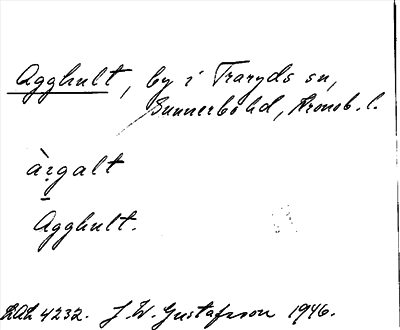 Agghult, by i Traryds sn,
Sunnerbo hd, Kronob. l.
àr̥galt
Agghult.
RAÄ 4232. J. W. Gustafsson 1946.